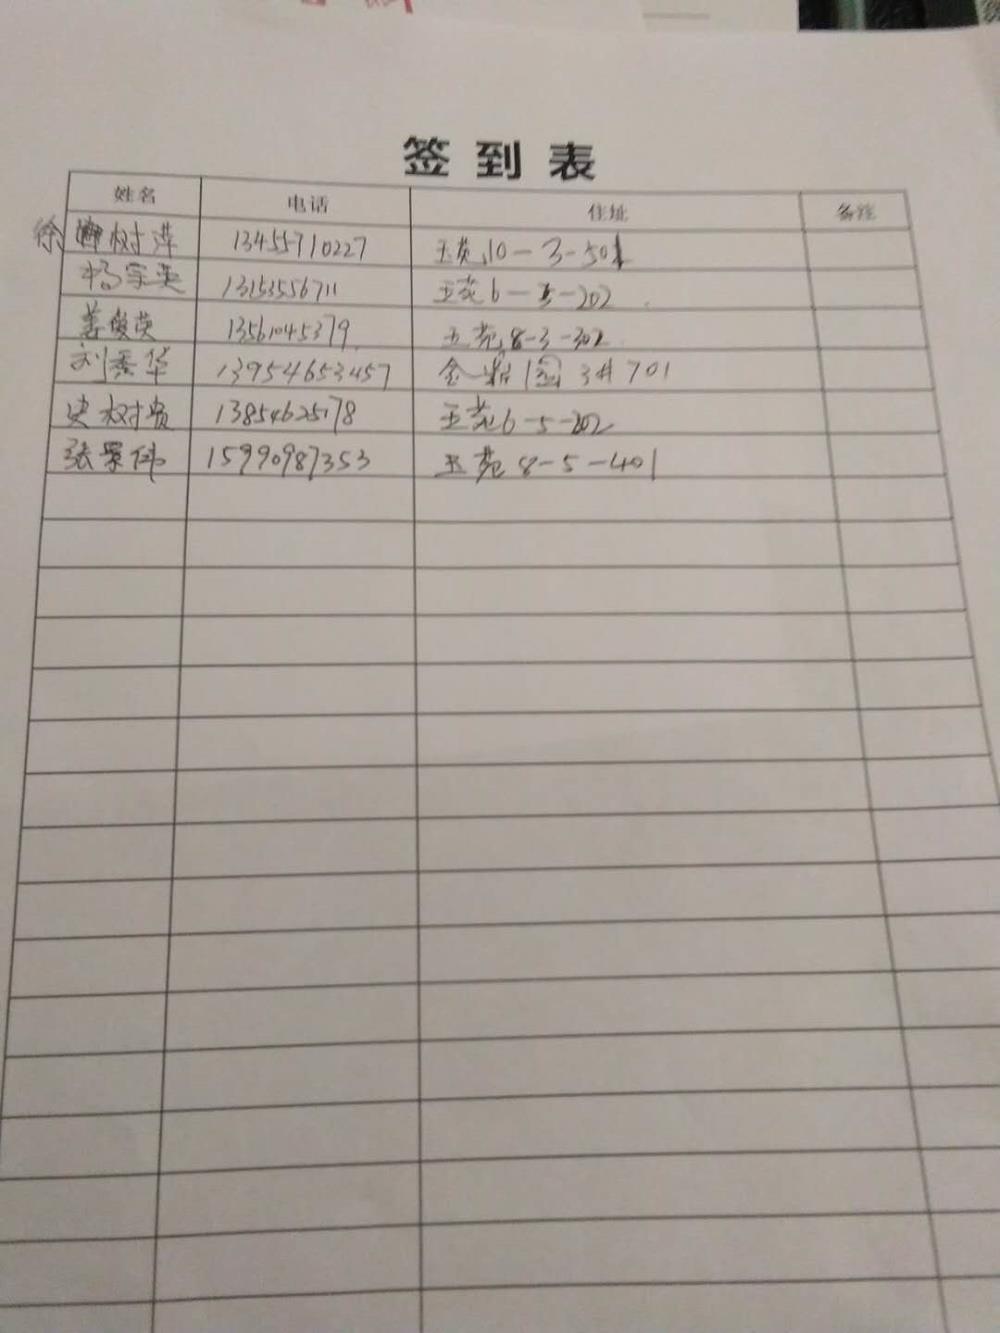 签到表
姓名 电话 住址 备注
徐树萍 13455710227 玉苑10-3-501
杨宗英 13153556711 玉苑6-3-202
姜俊英 13561045379 玉苑8-3-302
刘秀华 13954653457 金鼎园3#701
史树贞 13854625178 玉苑6-5-202
张景伟 15990987353 玉苑8-5-401